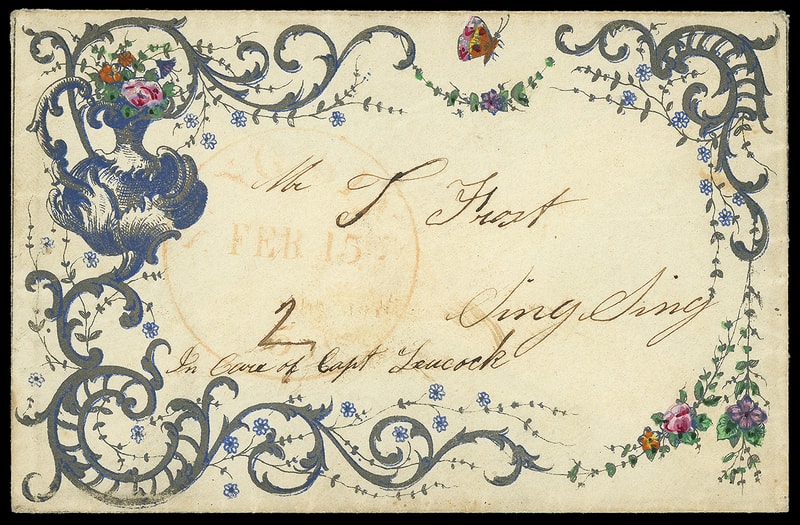 Mr T Frost
FEB 15
Sing Sing
2
In Care of Capt Leucock